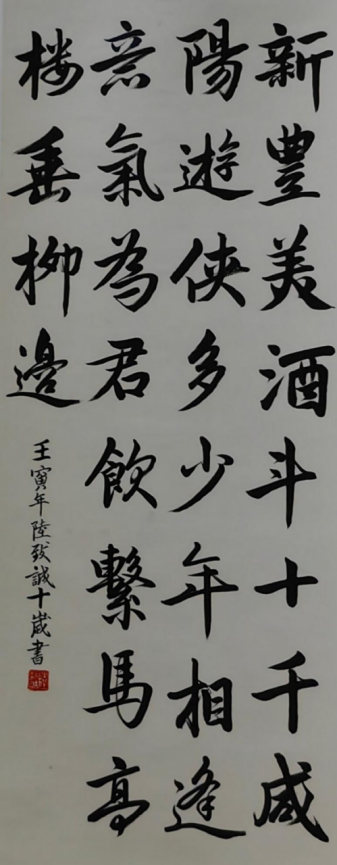 新豐美酒斗十千咸
陽遊俠多少年相逢
意氣為君飲繫馬高
楼垂柳邊
壬寅年陸致誠十歲書